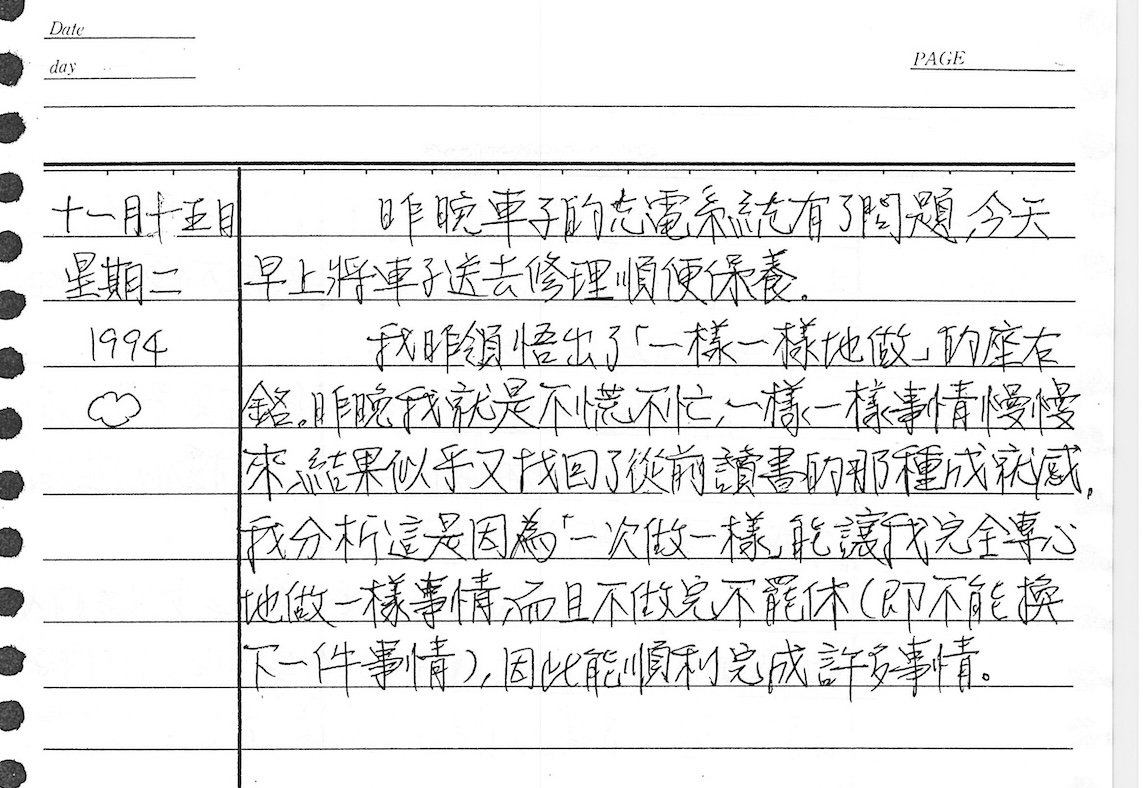 Date
day
PAGE
十一月十五日
星期二
1994
昨晚車子的充電系統有了問題,今天
早上將車子送去修理順便保養。
我昨領悟出了「一樣一樣地做」的座右
銘。昨晚我就是不慌不忙,一樣一樣事情慢慢
來,結果似乎又找回了從前讀書的那種成就感。
我分析這是因為「一次做一樣」能讓我完全專心
地做一樣事情,而且不做完不罷休(即不能換
下一件事情),因此能順利完成許多事情。